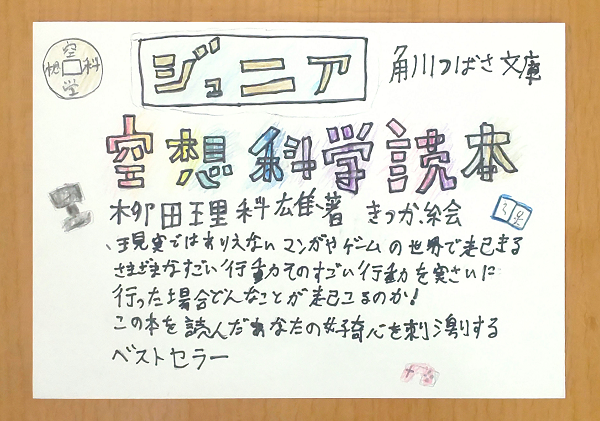 空想科学
ジュニア
角川つばさ文庫
空想科学読本
柳田理科雄著 きっか・絵
現実ではありえないマンガやゲームの世界で起きる
さまざまなすごい行動そのすごい行動を実さいに
行った場合どんなことが起こるのか!
この本を読んだあなたの好奇心を刺激する
ベストセラー